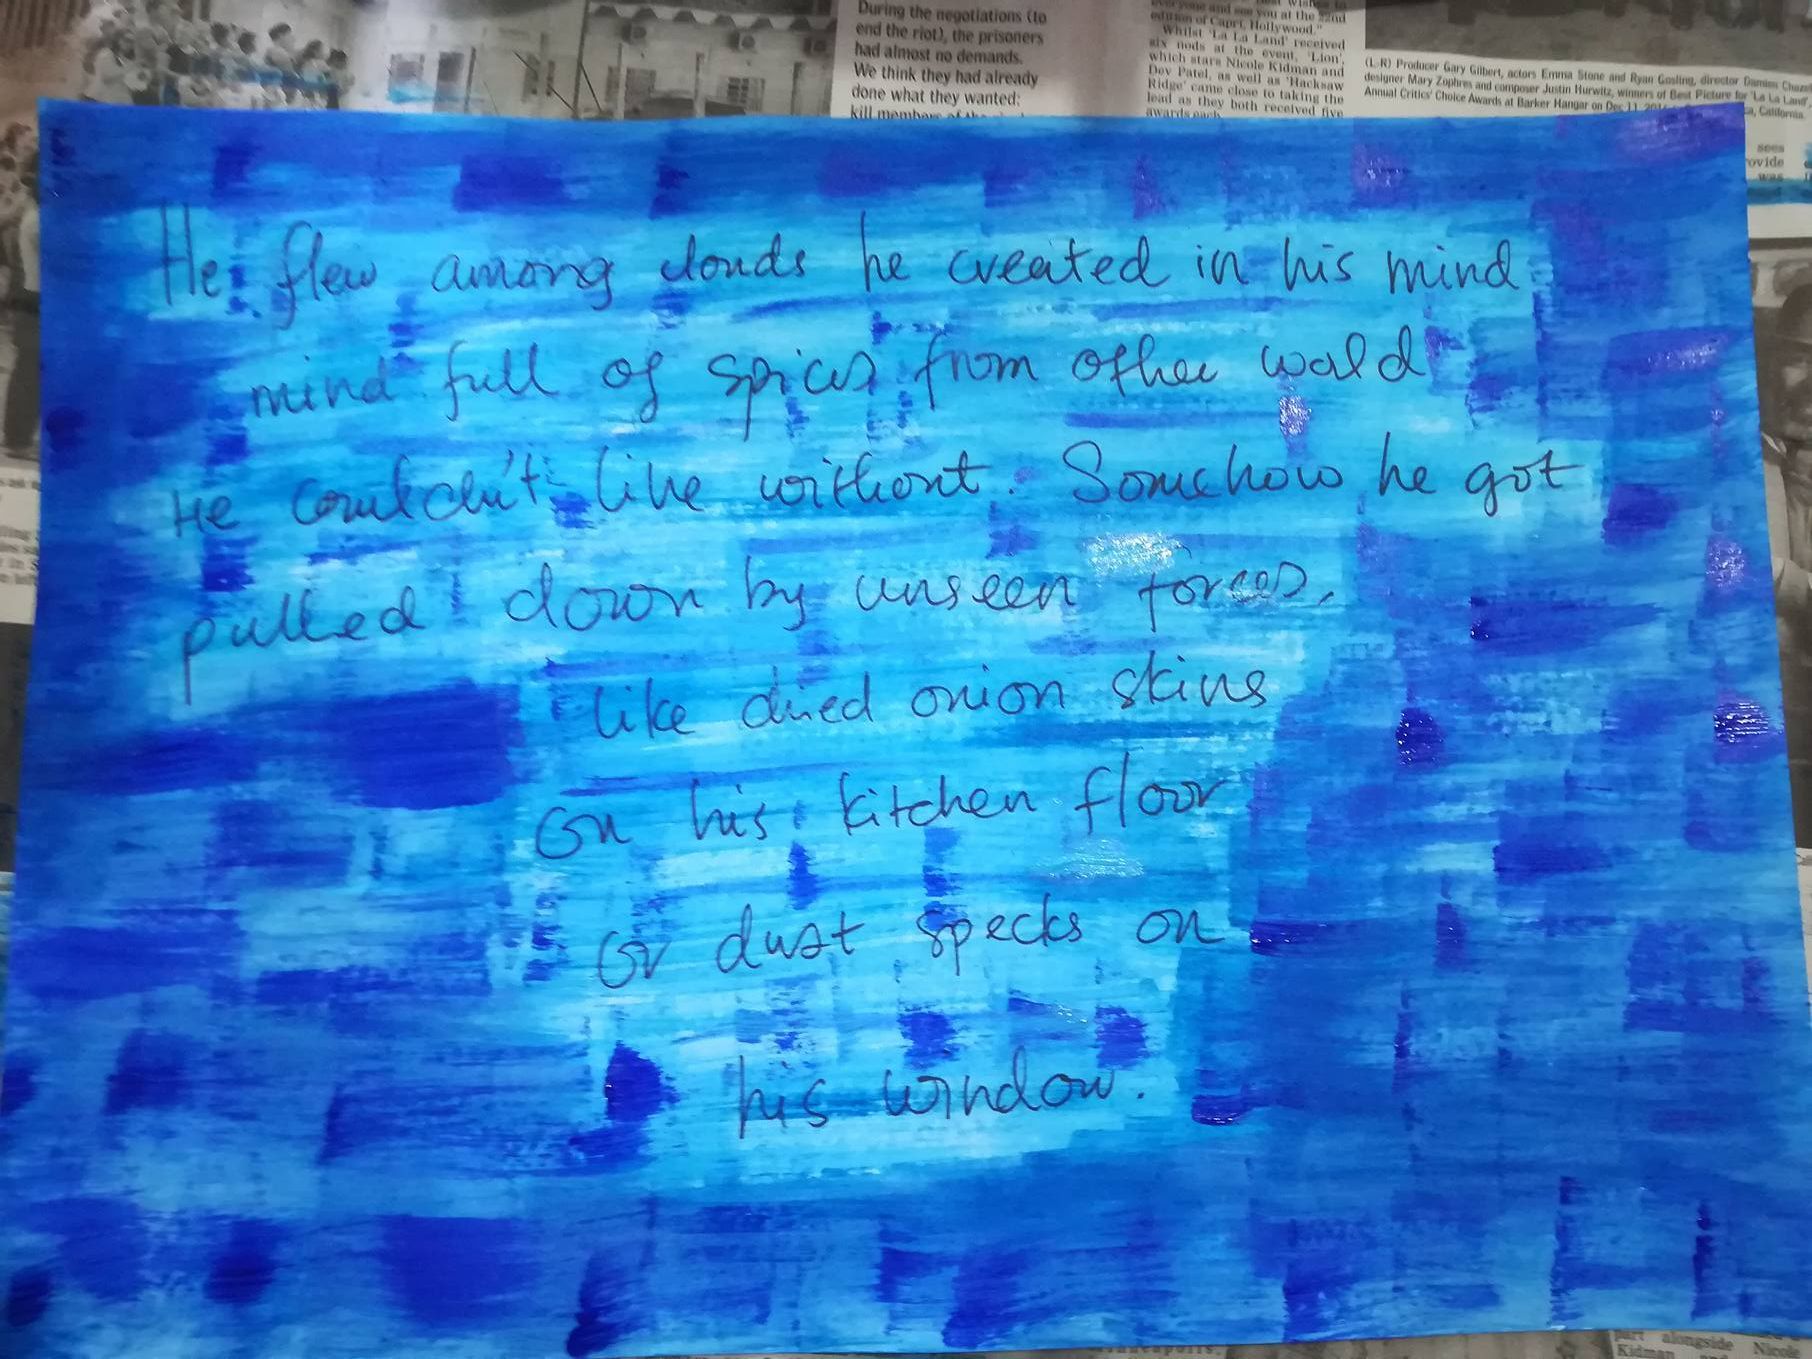 During the negotiations (to
end the riot), the prisoners
had almost no demands.
We think they had already
done what they wanted:
kill members of the
everyone and see you at the 22nd
edition of Capri, Hollywood."
Whilst 'La La Land' received
six nods at the event, 'Lion',
which stars Nicole Kidman and
Dev Patel, as well as 'Hacksaw
Ridge' came close to taking the
lead as they both received five
awards each
(L-R) Producer Gary Gilbert, actors Emma Stone and Ryan Gosling, director Damien
designer Mary Zophres and composer Justin Hurwitz, winners of Best Picture for 'La La Land'
Annual Critics' Choice Awards at Barker Hangar on Dec 11, California.
sees
ovide
was
He flew among clouds he created in his mind
mind full of spices from other world
He couldn't live without. Somehow he got
pulled down by unseen forces,
like dried onion skins
On his kitchen floor
Or dust specks on
his window.
part alongside Nicole
Kidman